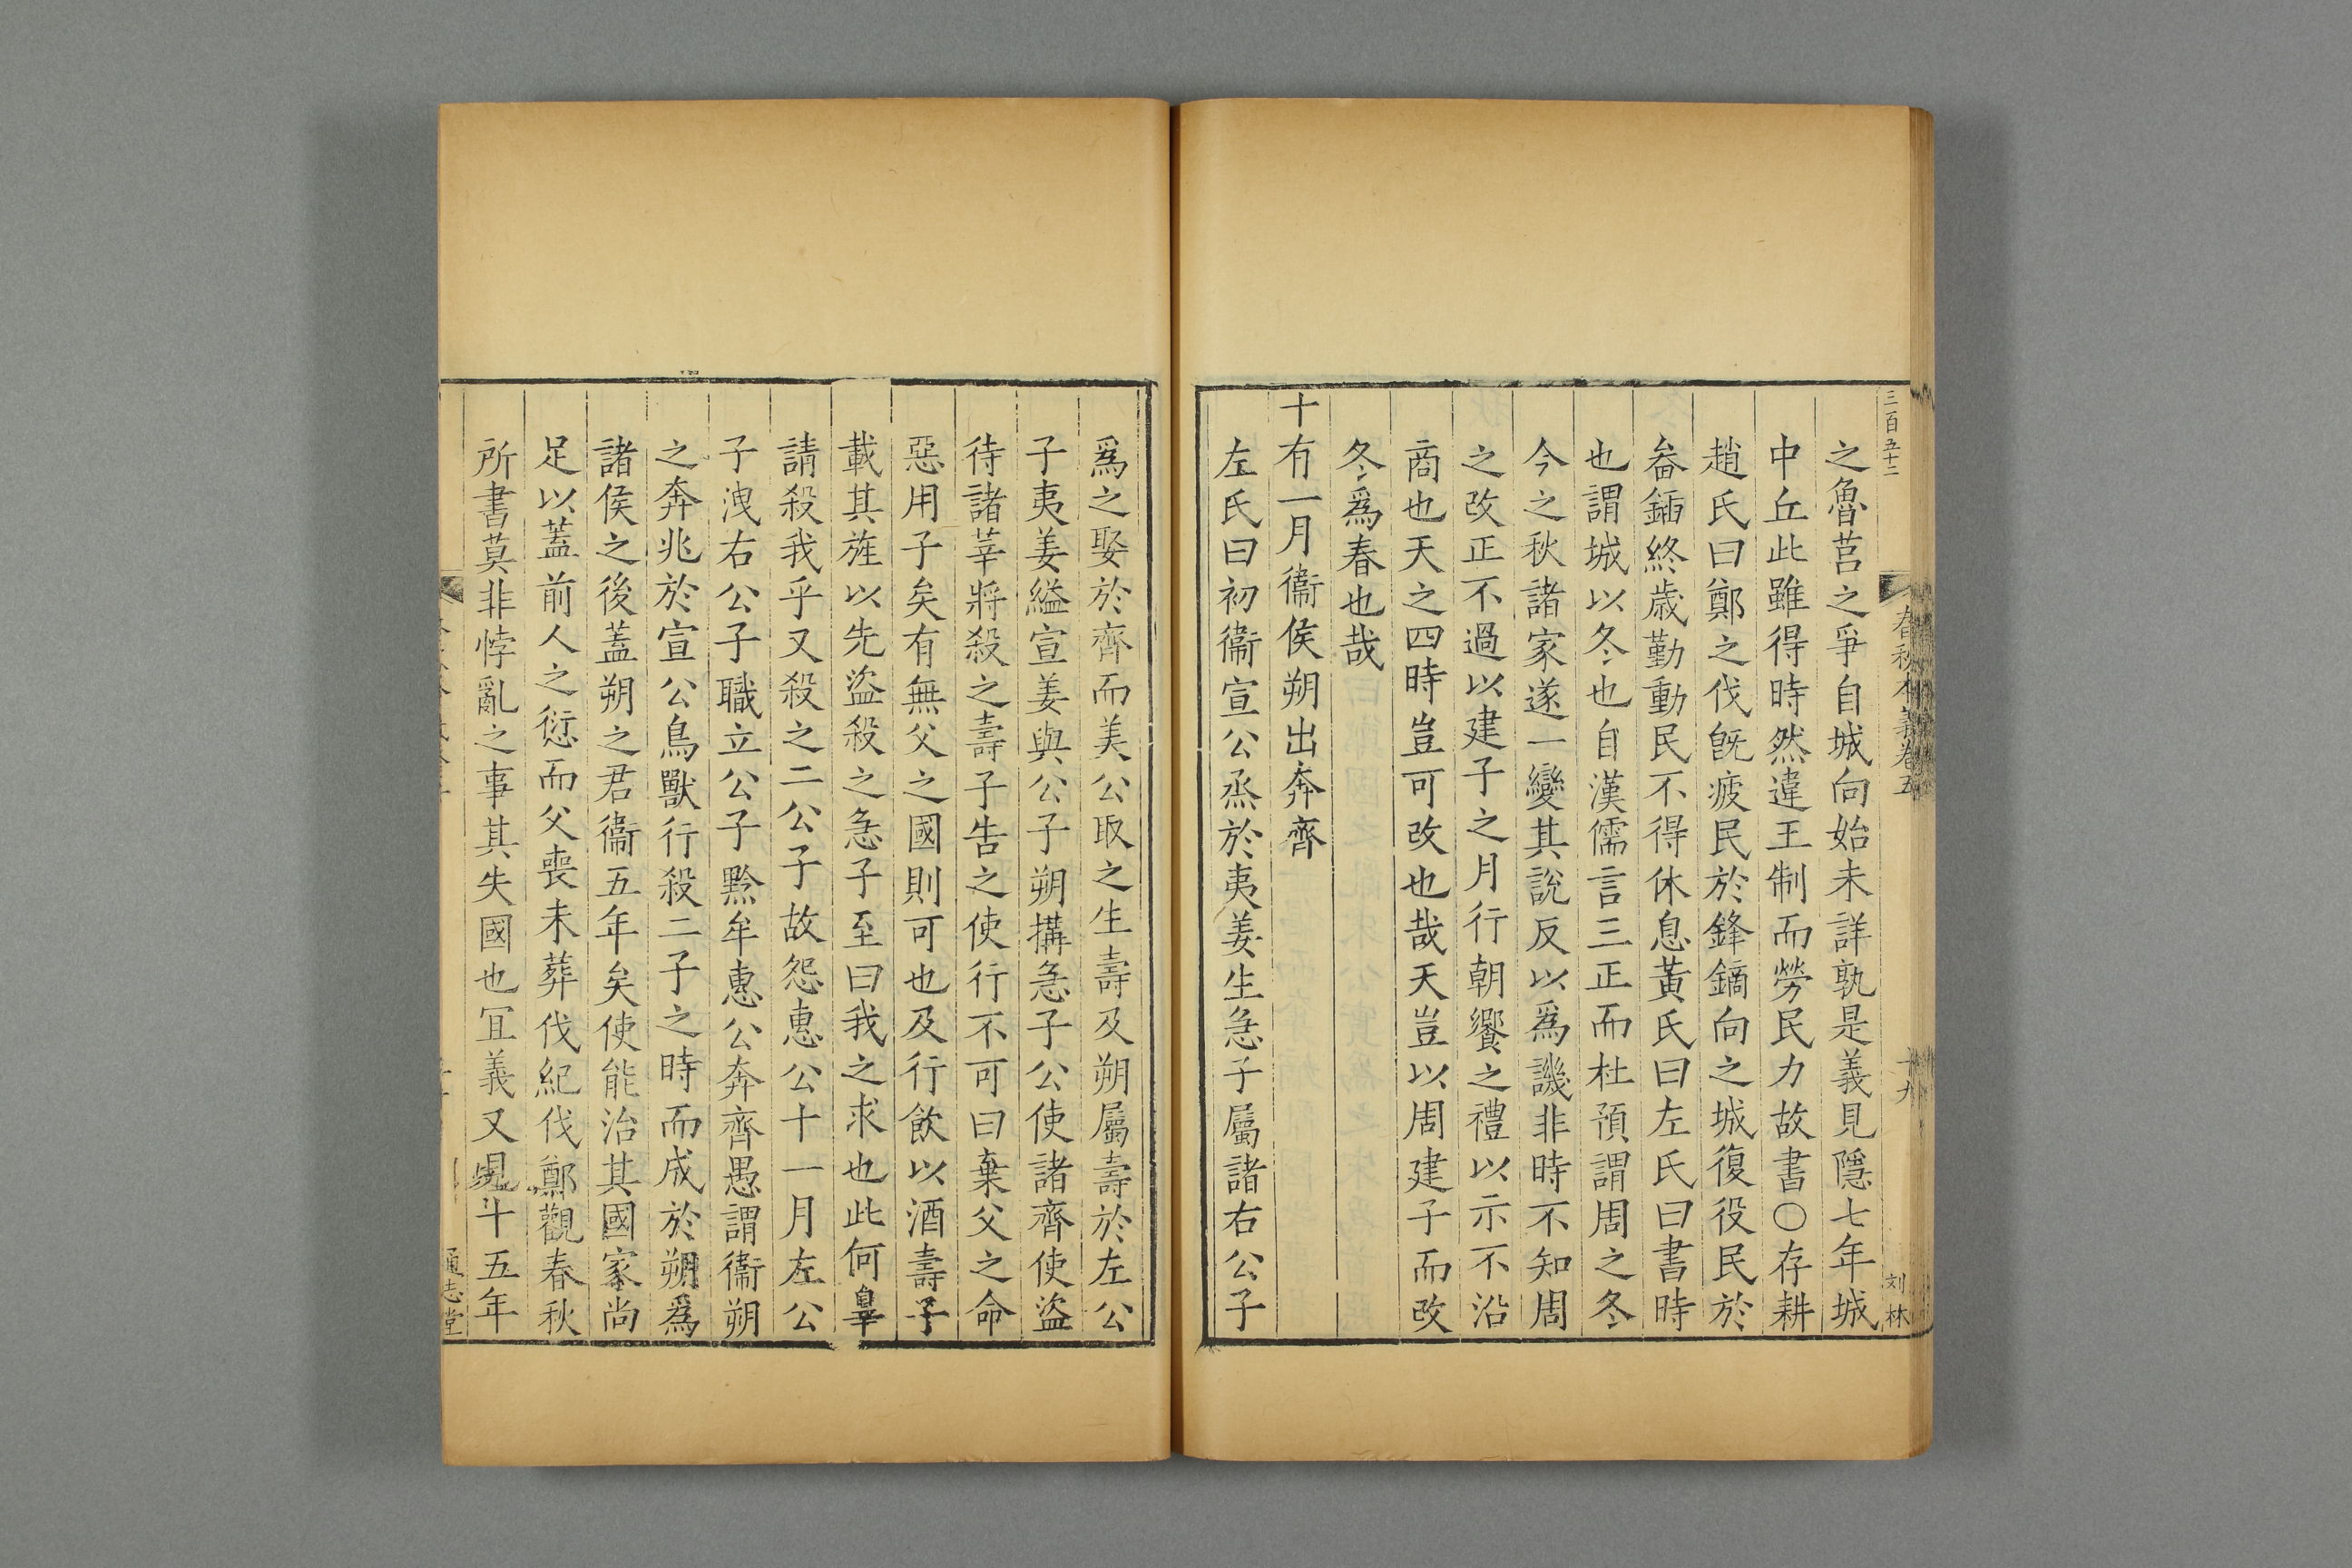 三百五十二
春秋本義卷五
十九
刘林
之魯莒之爭自城向始未詳孰是義見隱七年城
中丘此雖得時然違王制而勞民力故書〇存耕
趙氏曰鄭之伐旣疲民於鋒鏑向之城復役民於
畚鍤終歲勤動民不得休息黃氏曰左氏曰書時
也謂城以冬也自漢儒言三正而杜預謂周之冬
今之秋諸家遂一變其說反以爲譏非時不知周
之改正不過以建子之月行朝饗之禮以示不沿
商也天之四時豈可改也哉天豈以周建子而改
冬爲春也哉
十有一月衞侯朔出奔齊
左氏曰初衞宣公烝於夷姜生急子屬諸右公子
爲之娶於齊而美公取之生壽及朔屬壽於左公
子夷姜縊宣姜與公子朔搆急子公使諸齊使盜
待諸莘將殺之壽子告之使行不可曰棄父之命
惡用子矣有無父之國則可也及行飮以酒壽子
載其旌以先盜殺之急子至曰我之求也此何辠
請殺我乎又殺之二公子故怨惠公十一月左公
子洩右公子職立公子黔牟惠公奔齊愚謂衞朔
之奔兆於宣公鳥獸行殺二子之時而成於朔爲
諸侯之後蓋朔之君衞五年矣使能治其國家尚
足以蓋前人之愆而父喪未葬伐紀伐鄭觀春秋
所書莫非悖亂之事其失國也宜義又見十五年
通志堂